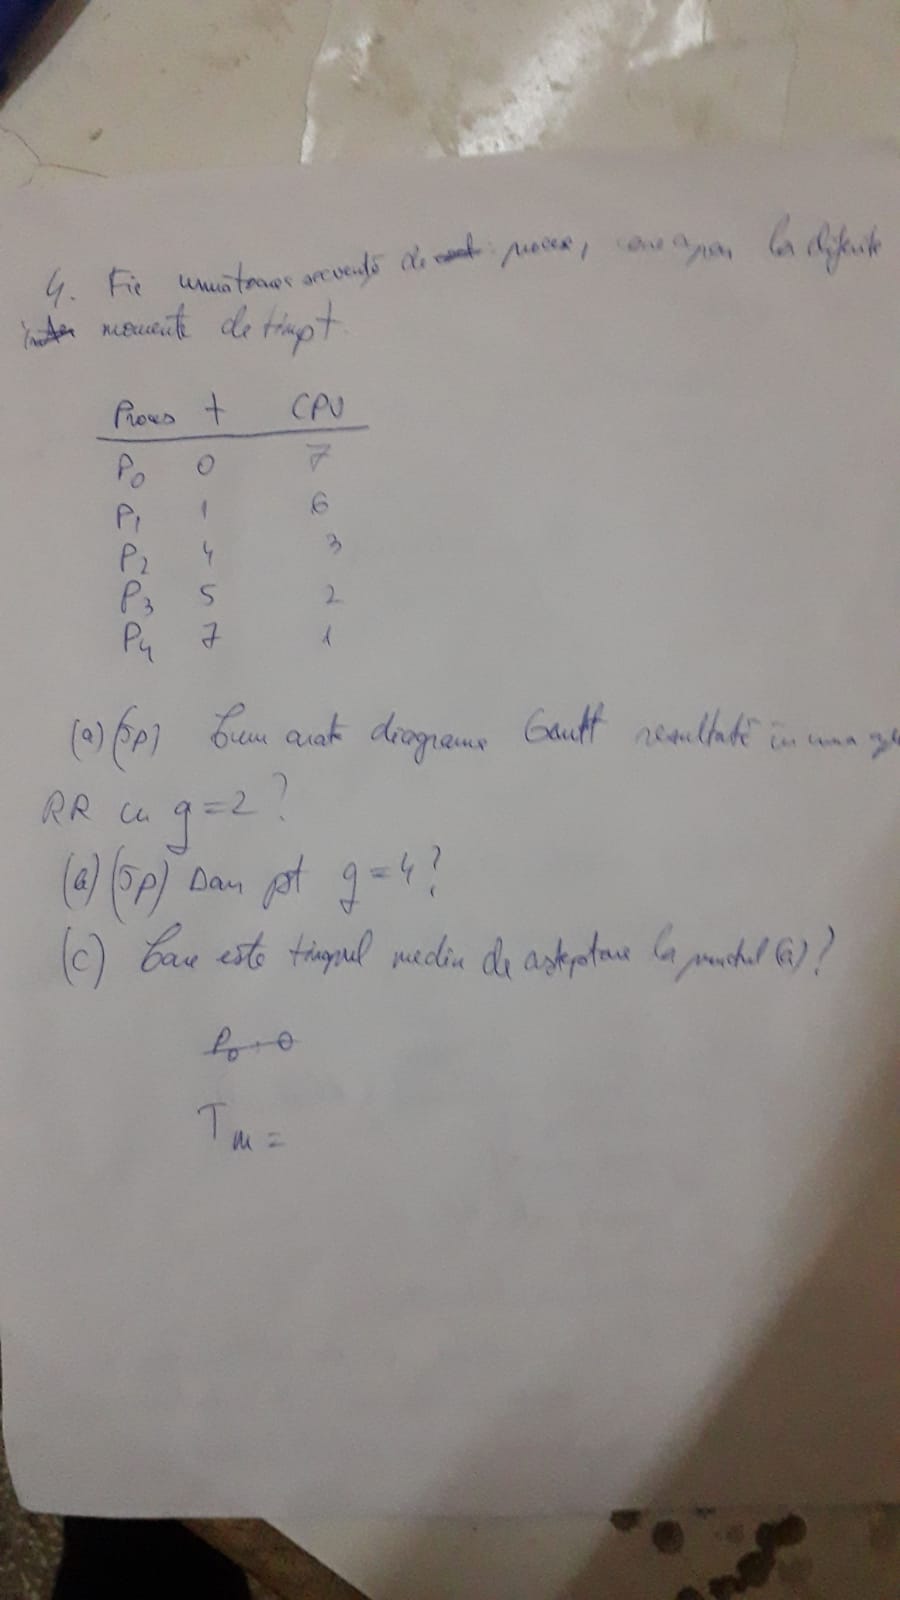 4. Fie următoarea secvență de procese, care apar la diferite
momente de timp t.
Proces t CPU
P0 0 7
P1 1 6
P2 4 3
P3 5 2
P4 7 1
(a) (5p) Cum arată diagrama Gantt rezultată în urma
RR cu g=2?
(b) (5p) Dar pt g=4?
(c) Care este timpul mediu de așteptare la punctul (a)?
P0 : 0
Tm =